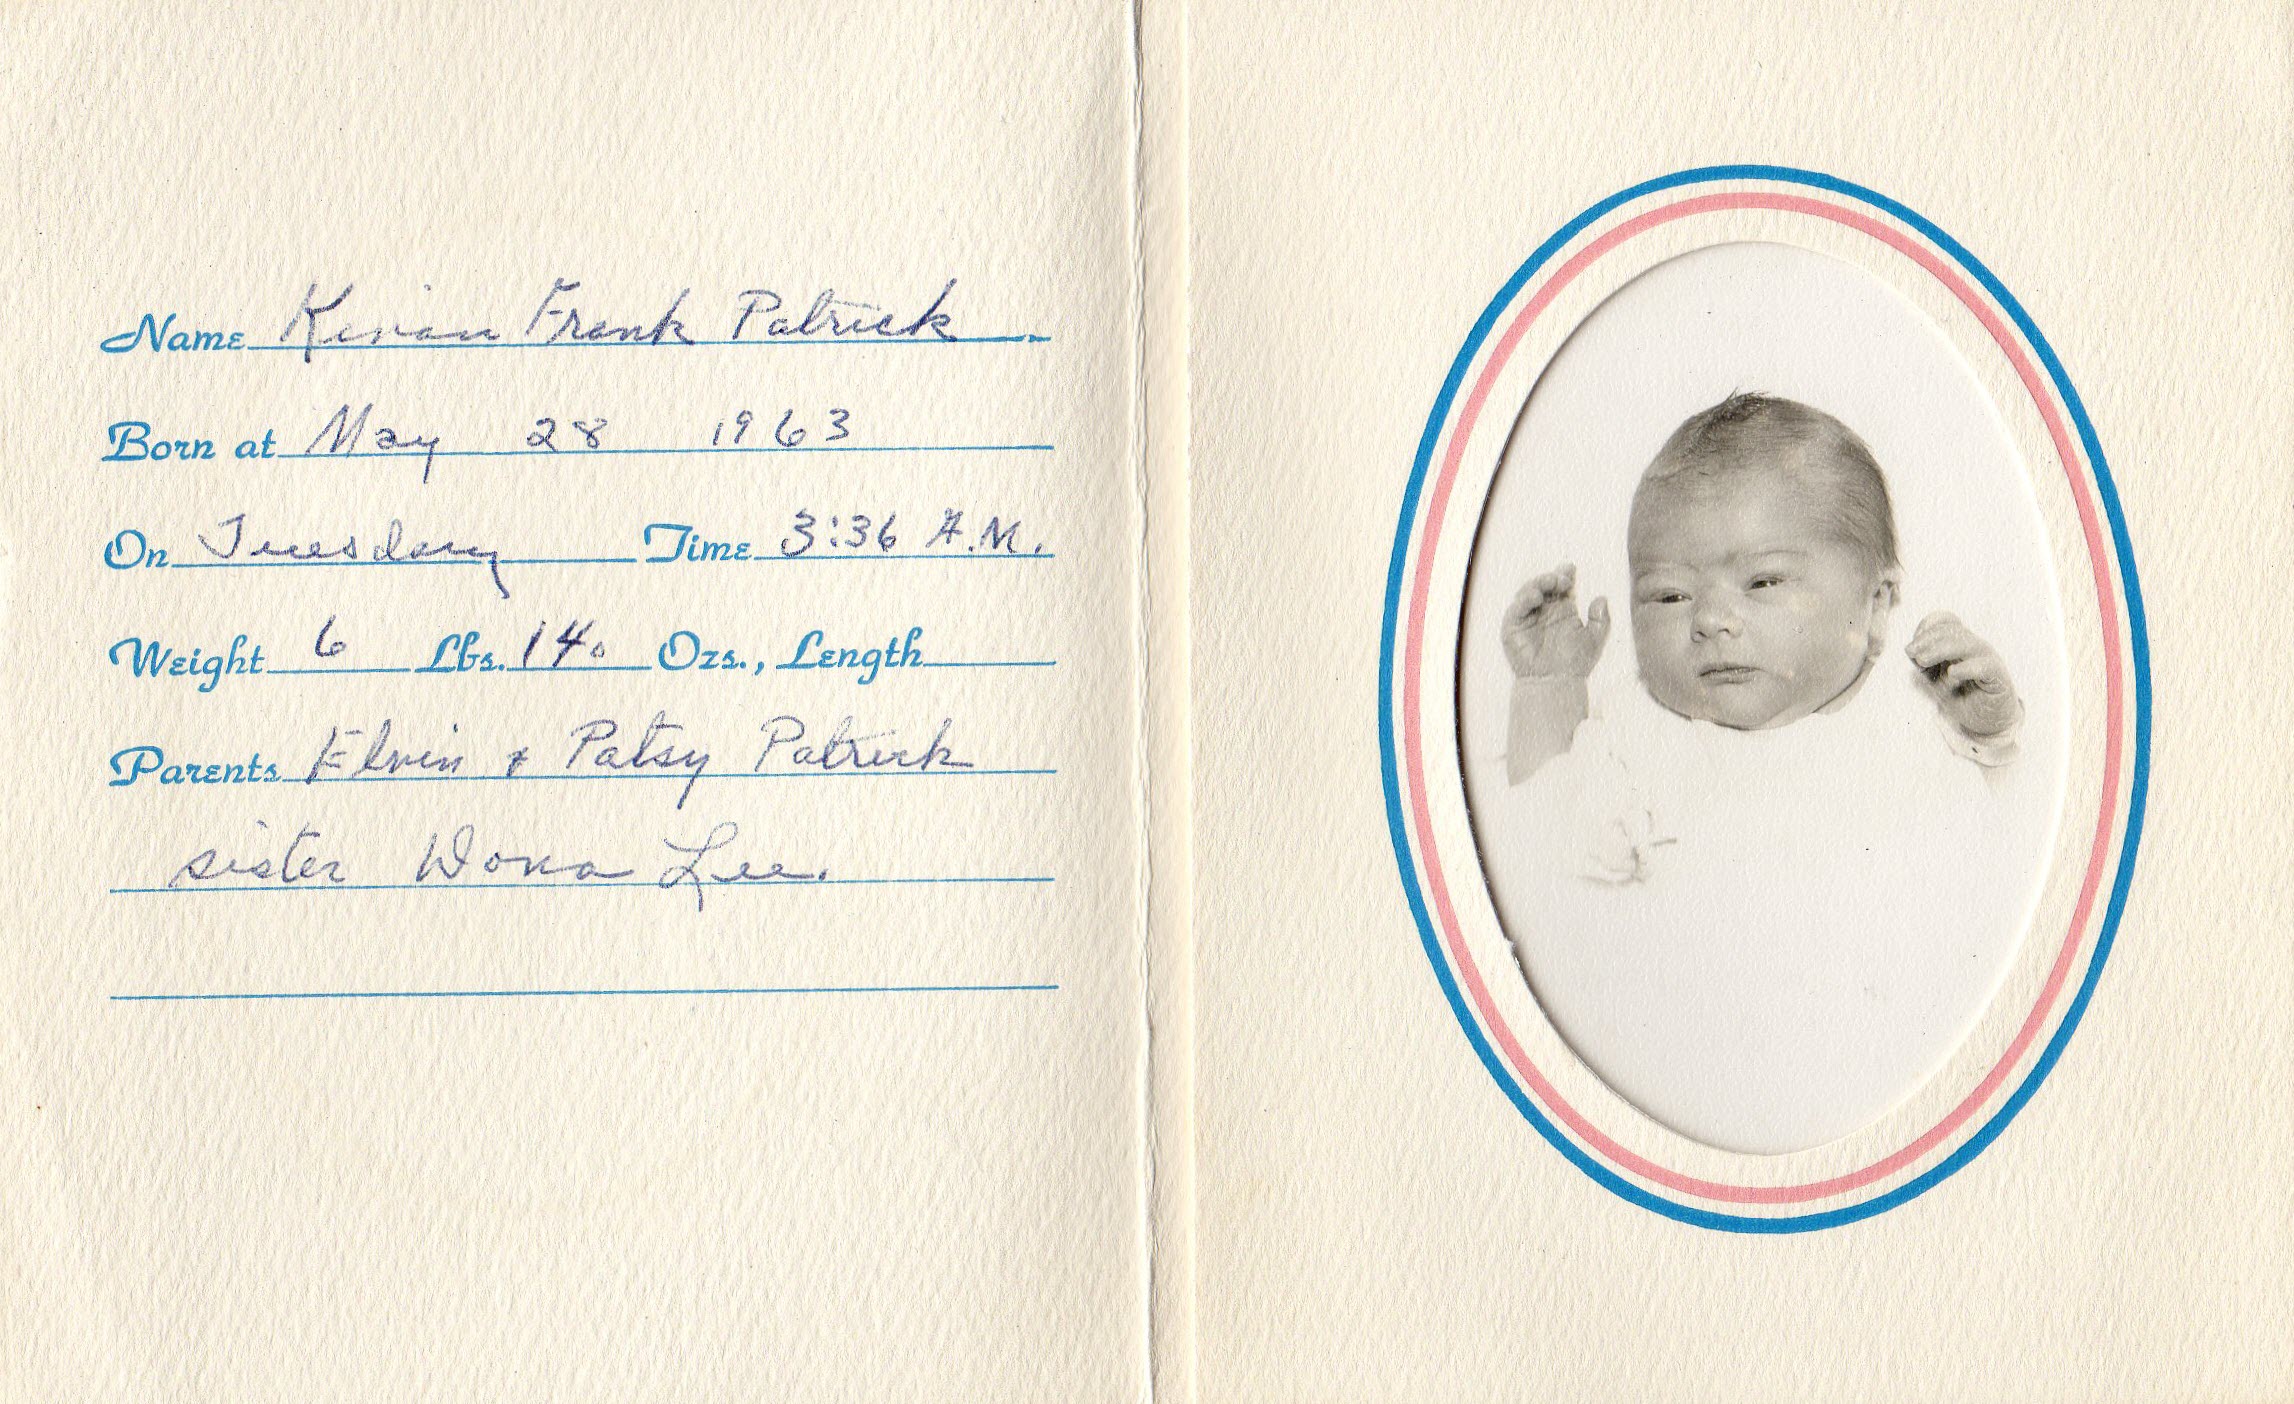 Name Kevan Frank Patrick
Born at May 28 1963
On Tuesday Time 3:36 A.M.
Weight 6 Lbs. 14 Ozs., Length
Parents Elvin & Patsy Patrick
sister Wona Lee.